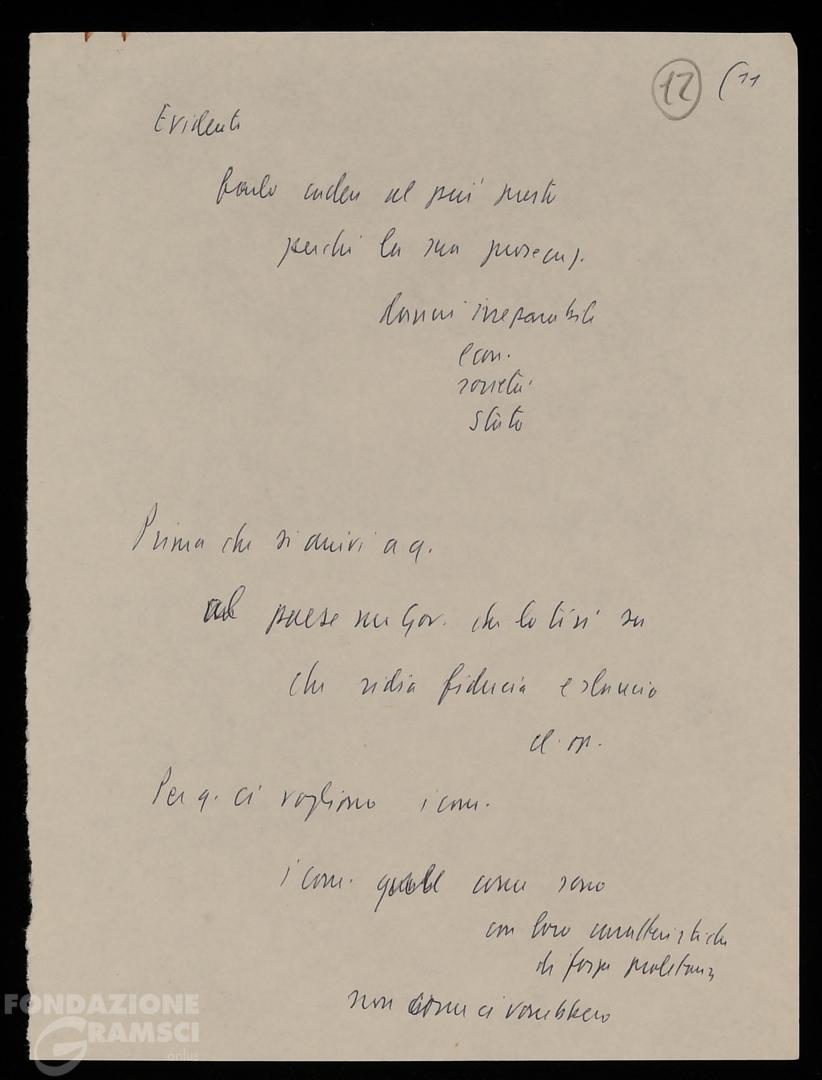 12 (11
Evidente
cader al più presto
perché la sua prosecuz.
danni irreparabili
econ.
società
Stato
Prima che si arrivi a q.
al paese un Gov. che lo tiri su
che ridia fiducia e slancio
cl. op.
Per q. ci vogliono i com.
i com. come sono
con loro caratteristiche
di forza proletaria
non come ci vorrebbero
FONDAZIONE
GRAMSCI
onlus